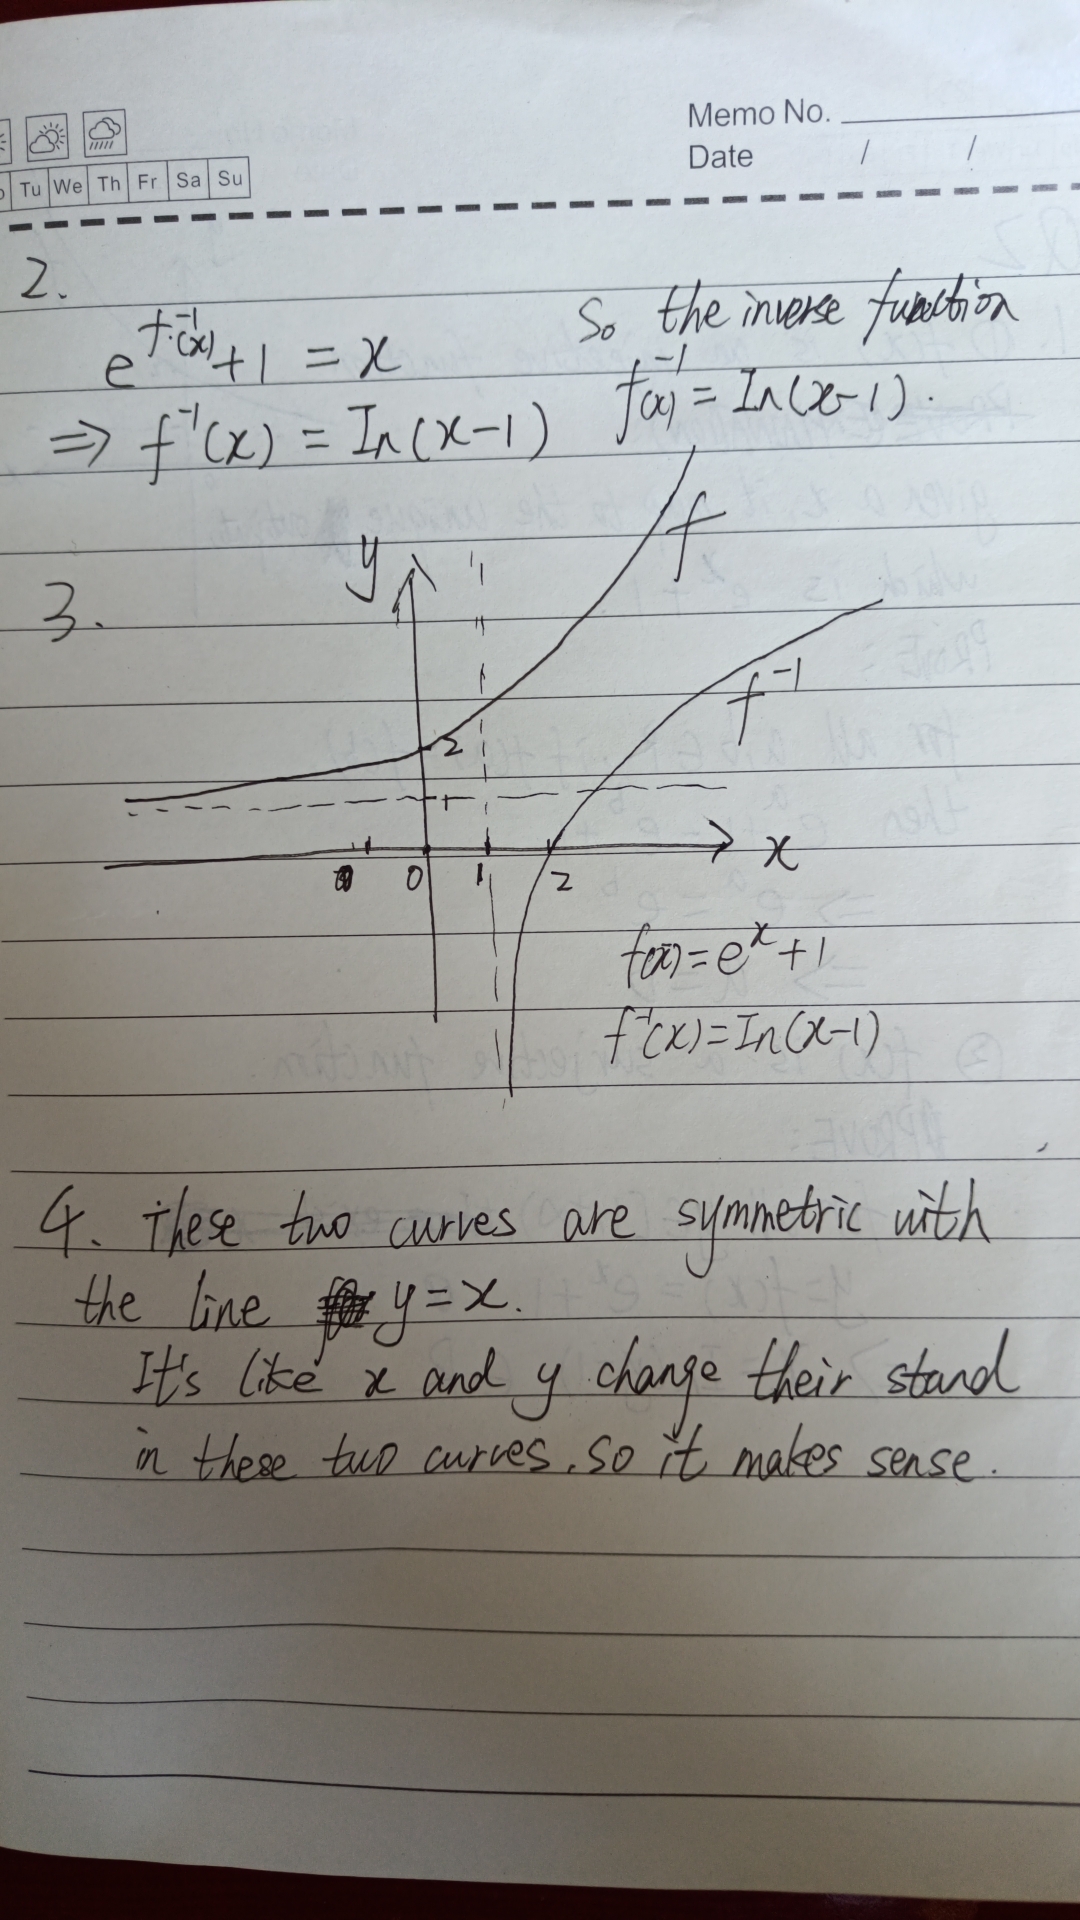 Memo No.
Date / /
Tu We Th Fr Sa Su
2.
e^{f^{-1}(x)}+1 = x
⇒ f^{-1}(x) = In(x-1)
So the inverse function
f^{-1}(x) = In(x-1).
3.
y
f
f^{-1}
2
1
x
0 1 2
f(x)=e^x+1
f^{-1}(x)=In(x-1)
4. These two curves are symmetric with
the line y=x.
It's like x and y change their stand
in these two curves, so it makes sense.